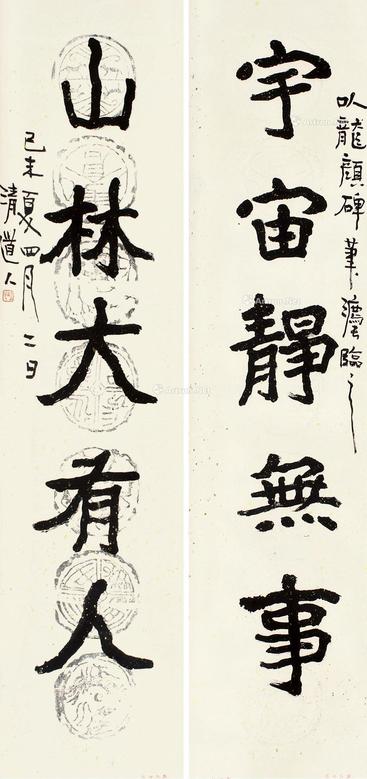 以龍顏碑筆灋臨之
宇宙靜無事
山林大有人
己未夏四月二日
清道人